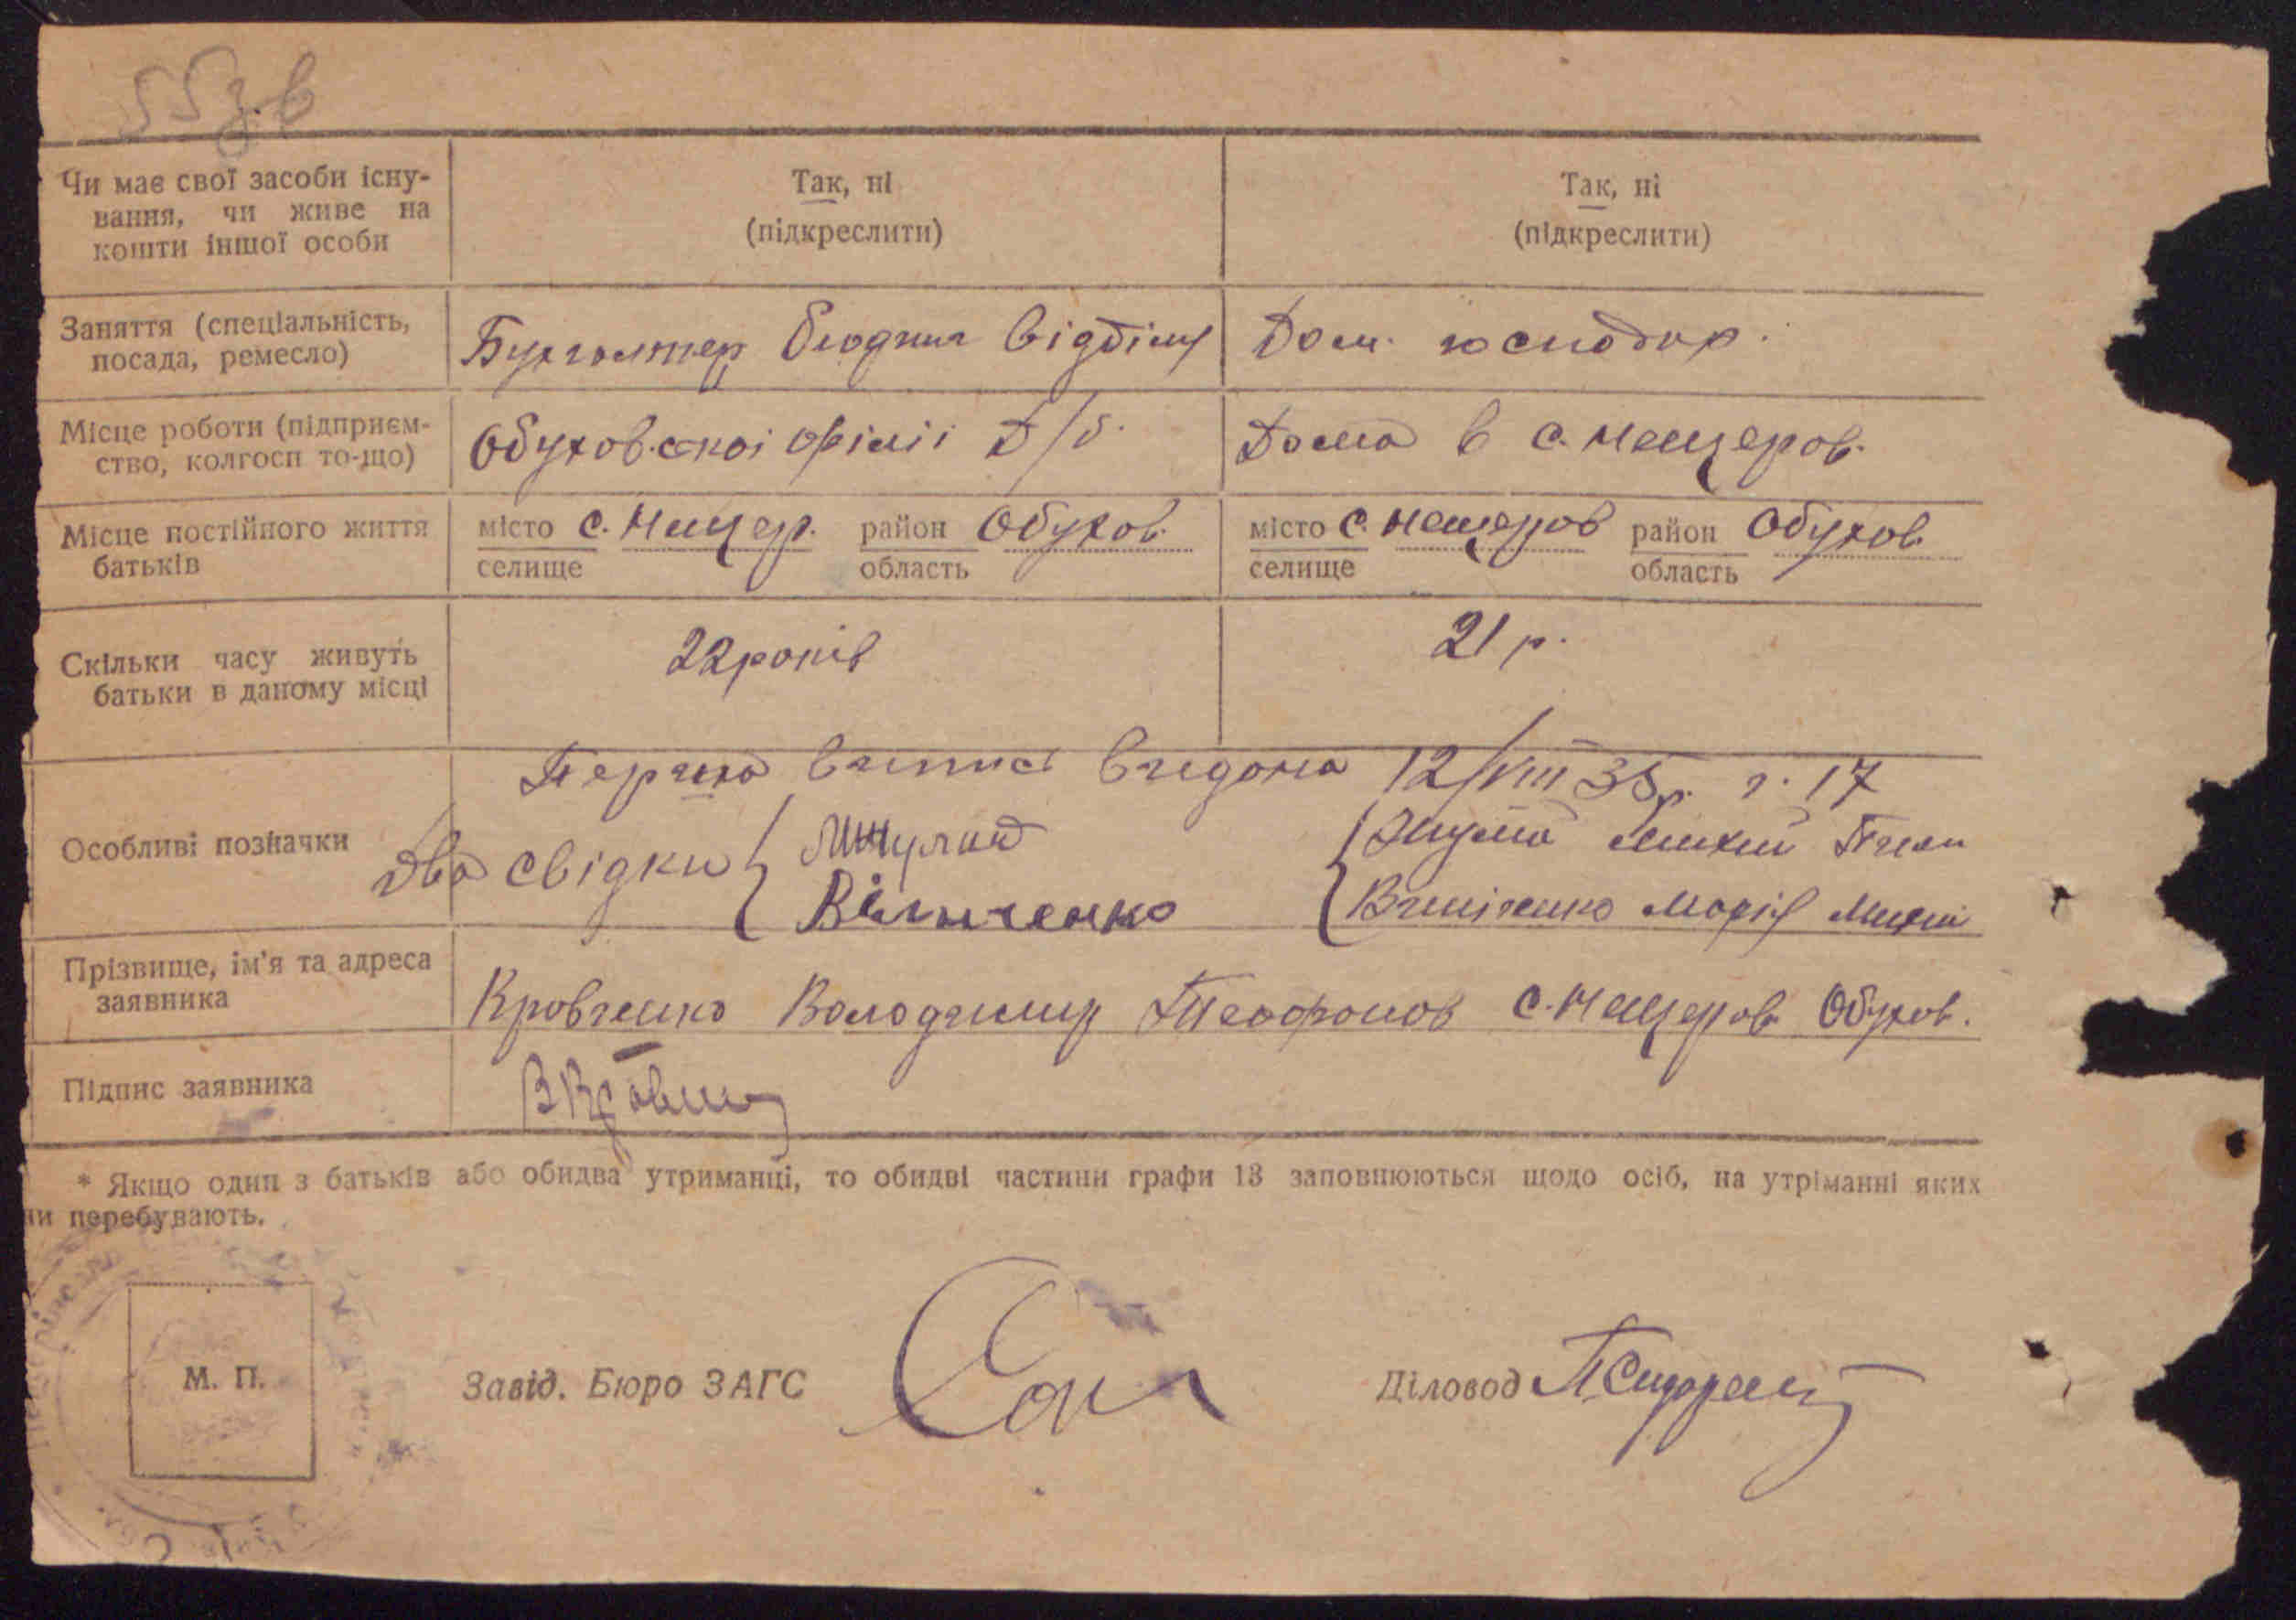 55 зв
Чи має свої засоби існу-
вання, чи живе на
кошти іншої особи
Так, ні
(підкреслити)
Так, ні
(підкреслити)
Заняття (спеціальність,
посада, ремесло)
Бухгалтер відділу
Дом. господар.
Місце роботи (підприєм-
ство, колгосп то-що)
Обухов.ської філії Д/б.
Дома в с. Нещеров.
Місце постійного життя
батьків
місто с. Нещер. район Обухов.
селище область
місто с. Нещеров район Обухов
селище область
Скільки часу живуть
батьки в даному місці
22 років
21 р.
Перша видана 12/VIII 35 р. 17
Особливі позначки
Два свідки
Марія
Прізвище, ім'я та адреса
заявника
Кравченко Володимир с. Нещеров Обухов.
Підпис заявника
* Якщо один з батьків або обидва утриманці, то обидві частини графи 13 заповнюються щодо осіб, на утріманні яких
чи перебувають.
М. П.
Завід. Бюро ЗАГС
Діловод